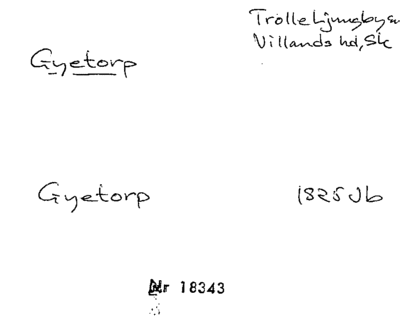 Trolle Ljungby sn
Villands hd, Sk
Gyetorp
Gyetorp 1825 Jb
Nr 18343